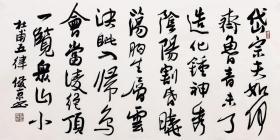 岱宗夫如何
齊魯青未了
造化鍾神秀
陰陽割昏曉
蕩胸生層雲
決眥入歸鳥
會當凌絕頂
一覽衆山小
杜甫五律